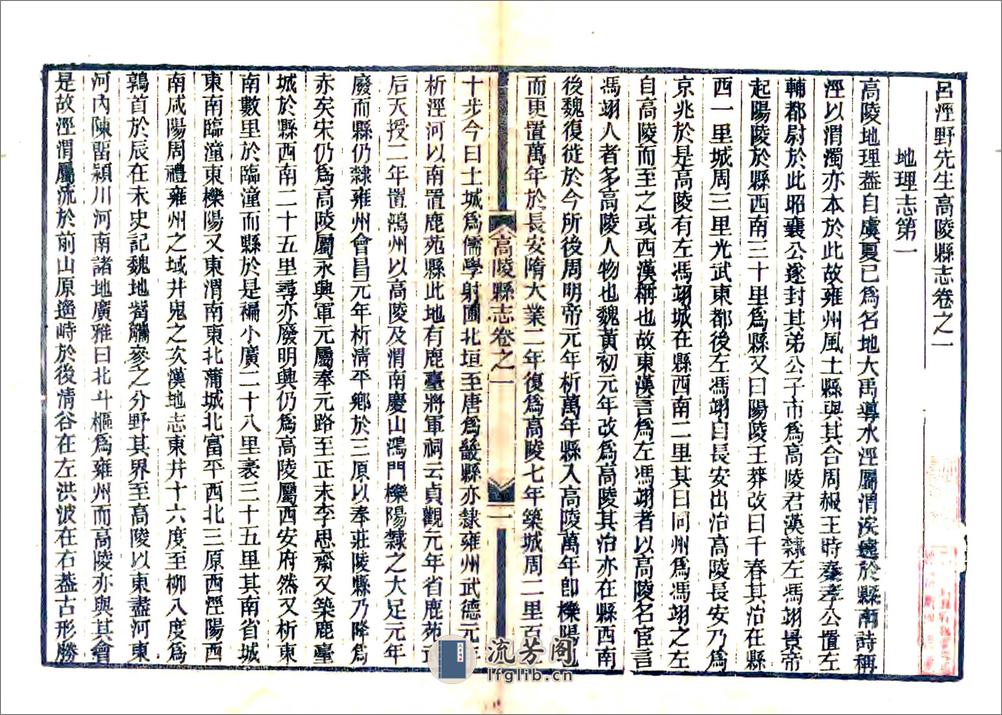 呂涇野先生高陵縣志卷之一
地理志第一
高陵地理葢自虞夏已爲名地大禹導水涇屬渭汭逸於縣南詩稱
涇以渭濁亦本於此故雍州風土縣與其合周赧王時秦孝公置左
輔都尉於此昭襄公遂封其弟公子市爲高陵君漢隸左馮翊景帝
起陽陵於縣西南三十里爲縣又曰陽陵王莽改曰千春其治在縣
西一里城周三里光武東都後左馮翊自長安出治高陵長安乃爲
京兆於是高陵有左馮翊城在縣西南二里其曰同州爲馮翊之左
自高陵而至之或西漢稱也故東漢言爲左馮翊者以高陵名宦言
馮翊人者多高陵人物也魏黃初元年改爲高陵其治亦在縣西南
後魏復徙於今所後周明帝元年析萬年縣入高陵萬年卽櫟陽也
而更置萬年於長安隋大業二年復爲高陵七年築城周二里百
高陵縣志卷之一
一
十步今曰土城爲儒學射圃北垣至唐爲畿縣亦隸雍州武德元
析涇河以南置鹿苑縣此地有鹿臺將軍祠云貞觀元年省鹿苑
后天授二年置鴻州以高陵及渭南慶山鴻門櫟陽隸之大足元年
廢而縣仍隸雍州會昌元年析淸平鄉於三原以奉莊陵縣乃降爲
亦矣宋仍爲高陵屬永興軍元屬奉元路至正末李思齋又築鹿臺
城於縣西南二十五里尋亦廢明興仍爲高陵屬西安府然又析東
南數里於臨潼而縣於是褊小廣二十八里袤三十五里其南省城
東南臨潼東櫟陽又東渭南東北蒲城北富平西北三原西涇陽西
南咸陽周禮雍州之域井鬼之次漢地志東井十六度至柳八度爲
鶉首於辰在未史記魏地觜觿參之分野其界至高陵以東盡河東
河內陳畱潁川河南諸地廣雅曰北斗樞爲雍州而高陵亦與其會
是故涇渭屬流於前山原遙峙於後淸谷在左洪波在右葢古形勝
流芳閣
lfglib.cn